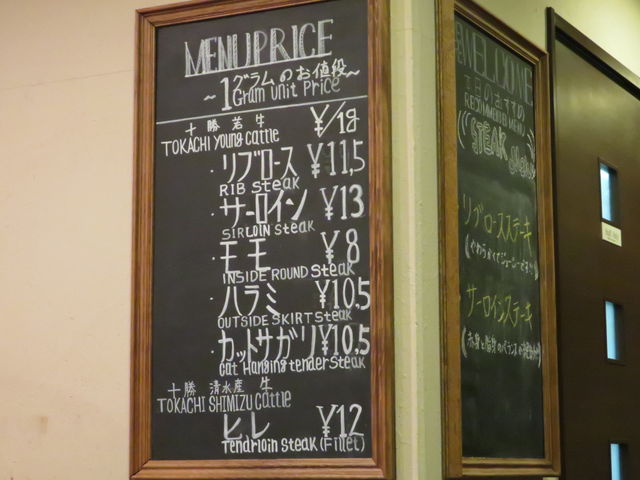 MENU PRICE
~1グラムのお値段~
Gram unit Price
十勝 若牛 ¥/1g
TOKACHI young cattle
・リブロース ¥11,5
RIB steak
・サーロイン ¥13
SIRLOIN steak
・モモ ¥8
INSIDE ROUND Steak
・ハラミ ¥10,5
OUTSIDE SKIRT steak
・カットサガリ ¥10,5
Cat Hanging tender steak
十勝 清水産 牛
TOKACHI SHIMIZU cattle
ヒレ ¥12
Tendrloin steak (Fillet)
WELCOME
本日のおすすめ
RECOMMEND MENU
STEAK
リブロースステーキ
サーロインステーキ